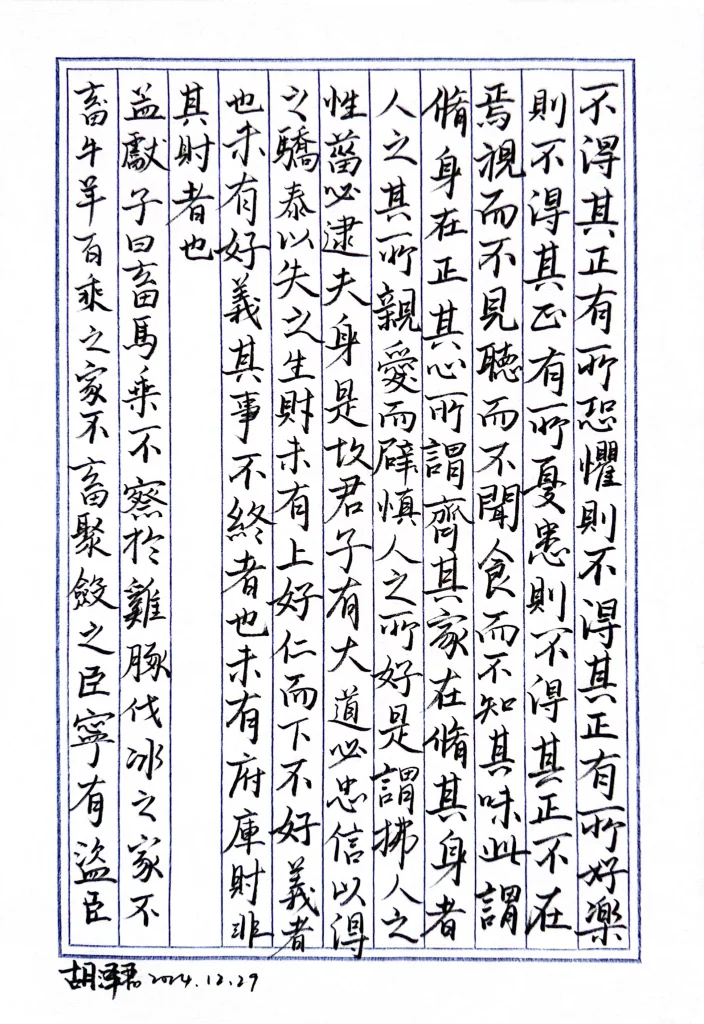 不得其正有所恐懼則不得其正有所好樂
則不得其正有所憂患則不得其正不在
焉視而不見聽而不聞食而不知其味此謂
脩身在正其心所謂齊其家在脩其身者
人之其所親愛而辟慎人之所好是謂拂人之
性菑必逮夫身是故君子有大道必忠信以得
之驕泰以失之生財未有上好仁而下不好義者
也未有好義其事不終者也未有府庫財非
其財者也
孟獻子曰畜馬乘不察於雞豚伐冰之家不
畜牛羊百乘之家不畜聚斂之臣寧有盜臣
胡澤君 2024.12.29